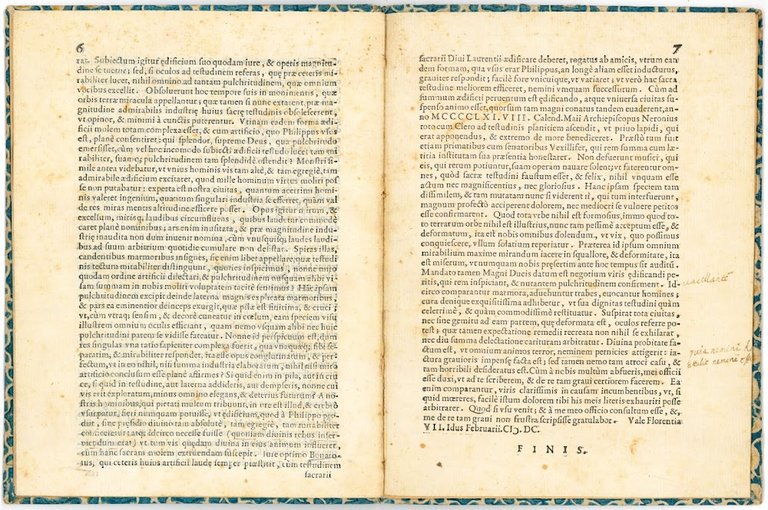 6
rat. Subiectum igitur ędificium suo quodam iure, & operis magnitu-
dine se tuetur; sed, si oculos ad testudinem referas, quę prę ceteris mi-
rabiliter lucet, nihil omnino ad tantam pulchritudinem, quæ omnium
vocibus excellit. Obsoluerunt hoc tempore suis in monimentis, quæ
orbis terræ miracula appellantur; quæ tamen si nunc extarent, præ ma-
gnitudine admirabilis industrię huius sacrę testudinis obsolescerent,
vt opinor, & minimi à cunctis puterentur. Vtinam eadem forma ędi-
ficii molem totam complexa esset, & cum artificio, quo Philippus vsus
est, planè consentiret; qui splendor, supreme Deus, qua pulchritudo
emersisset, cùm vel hoc incomodo subiecti ędificii testudo lucet tam mi-
rabiliter, suamq; pulchritudinem tam splendidè ostendit? Monstri si-
mile antea videbatur, vt vnius hominis vis tam altè, & tam egregiè, tam
admirabile ędificium excitaret, quod mille hominum virtus moliri pos-
se non putabatur: experta est nostra ciuitas, quantum acerrimi homi-
nis valeret ingenium, quantum singulari industria is efficeret, quàm val
de res miras mentis altitudine efficere posset. Opus igitur mirum, &
excelsum, mitto, laudibus circumfluens, quibus laudetur commodè
caret planè nominibus; ars enim inusitata, & præ magnitudine indu-
strię inaudita non dum inuenit nomina, cùm vnusquisq; laudes laudi-
bus ad suum arbitrium quotidie cumulare non desistat. Spiras illas,
candentibus marmoribus insignes, sic enim libet appellare, quæ testudi
nis tecturā mirabiliter distinguunt, quoties inspicimus, nonne miro
quodam ordine artificii delectari, & pulchritudinem nusquam alibi vi-
sam summo in nobis moliri voluptatem tacitè sentimus? His ipsum
pulchritudinem excipit deinde laterna magnis explicata marmoribus,
& par ea eminentior deinceps exurgit, quæ pila est finitima, & cruci;
vt cùm vtraq; sensim, & decorè cuneatur in cœlum, eam speciem visu
illustrem omnium oculis efficiant, quam nemo vsquam alibi nec huic
pulchritudini parem se vidisse fateatur. Nonne id perspicuum est, quò
tres singulas vna ratio sapienter complexa fuerit, qua vnaquæq; sibi se-
paratim, & mirabiliter respondet, ita esse opus conglutinatum, & per-
petuum, vt in eo nihil, nisi summa industria elaboratum, nihil nisi miro
artificio conclusum esse planè affirmes? Si quid demum in pila, aut in cru
ci, si quid in testudine, aut laterna addideris, aut dempseris, nonne cui
vis erit exploratum, minus omnino elegans, & deterius futurum? A no
stris hominibus, qui pertari molem tribunum, in ore est illud, & crebrò
vsurpatur, fieri nunquam potuisse, vt ędificium, quod à Philippo pe-
dit, sine pręsidio diuino tam absolutè, tam egregiè, tam mirabiliter
concinnaretur; atq; idcirco necesse fuisse (quoniam diuinis rebus inser-
uiendum erat) vt tum vis quędam diuina in eius animum influeret,
cùm hanc sacram molem extruendam suscepit. Iure optimo Bonaro-
tus, qui ceteris huius artificii laude semper præstitit, cùm testudinem
sacrarii
7
sacrarii Diui Laurentii ædificare deberet, rogatus ab amicis, vtrum ean
dem formam, qua vsus erat Philippus, an longè aliam esset inducturus,
grauiter respondit; facilè fore vnicuique, vt variaret, vt verò hac sacra
testudine excelleret, nemini vmquam successurum. Cùm ad
summum ædificii peruẽtum est ędificando, atque vniuersa ciuitas su-
spenso animo esset, quorsùm tam magni conatus tandem euaderent, an-
no MCCCCLXI.VIII. Calend. Maii Archiepiscopus Neronius
tota cum Clero ad testudinis planitiem ascendit, vt priuo lapidi, qui
erat apponendus, & extremo de more benediceret. Præstò tum fuit
etiam primatibus cum senatoribus Vexillifer, qui rem summa cum læ-
titia institutam sua præsentia honestaret. Non defuerunt musici, qui
eis, qui rerum potiuntur, suam operam nauare solent; vt fateretur om-
nes, quòd sacræ testudini faustum esset, & felix, nihil vnquam esse
actum nec magnificentius, nec gloriosus. Hanc ipsam speciem tam
dissimilem, & tam mutatam nunc si viderent ii, qui tum interfuerunt,
magnum profectò acciperent dolorem, nec mediocri se vulnere petitos
esse confirmarent. Quod tota vrbe nihil est formosius, immo quod to-
to terrarum orbe nihil est illustrius, nunc tam pessimè acceptum esse, &
deformatum, ita est nobis omnibus dolendum, vt vix, quo possimus
conquiescere, vllum solatium reperiatur. Præterea id ipsum omnium
mirabilium maxime mirandum iacere in squallore, & deformitate, ita
est miserum, vt numquam nobis præsertim ante hoc tempus sit auditū.
Mandato tamen Magni Ducis datum est negotium viris ędificandi pe-
ritis, qui rem inspiciant, & nutantem pulchritudinem confirment. Id-
circo comparantur marmora, adhucuntur trabes, euocantur homines;
cura denique exquisitissima adhibetur, vt sua dignitas testudini quàm
celerrimè, & quàm commodissimè restituatur. Suspirat tota ciuitas,
nec sine gemitu ad eam partem, quę deformata est, oculos referre po-
test; quæ tamen expectatione remedii recreata non nihil se exhilarat,
nec diu summa delectatione carituram arbitratur. Diuina probitate fa-
ctum est, vt omnium animos terror, neminem pernicies attigerit: ia-
ctura grauioris impensę facta est; sed tamen nemo tam atroci casu, &
tam horribili desideratus est. Cùm à nobis multùm abfueris, mei officii
esse duxi, vt ad te scriberem, & de re tam graui certiorem facerem. Ea
enim comparantur, viris clarissimis in causam incumbentibus, vt, si
quid mœreres, facilè istum dolorem tibi his meis literis exhauriri posse
arbitrarer. Quod si vsu venit; & à me meo officio consultum esse, &,
me de re tam graui non frustra scripsisse gratulabor. Vale Florentia
VII. Idus Februarii. CIↃ. DC.
FINIS.